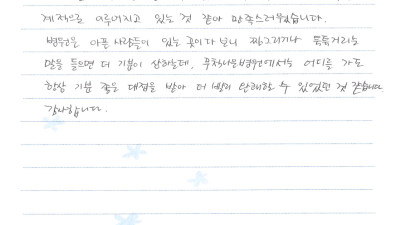 계적으로 이루어지고 있는 것 같아 만족스러웠습니다.
병원은 아픈 사람들이 있는 곳이다 보니 찡그리거나 툭툭거리는
말을 들으면 더 기분이 상하는데, 부천서울병원에서는 어디를 가도
항상 기분 좋은 대접을 받아 더 빨리 쾌해질 수 있었던 것 같습니다
감사합니다.